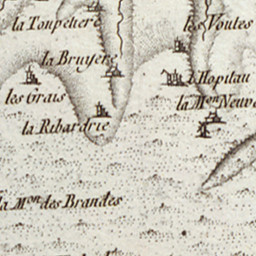 la Toupetiere
les Voutes
la Bruyere
l'Hopitau
les Grais
la M.on Neuve
la Ribardrie
la M.on des Brandes